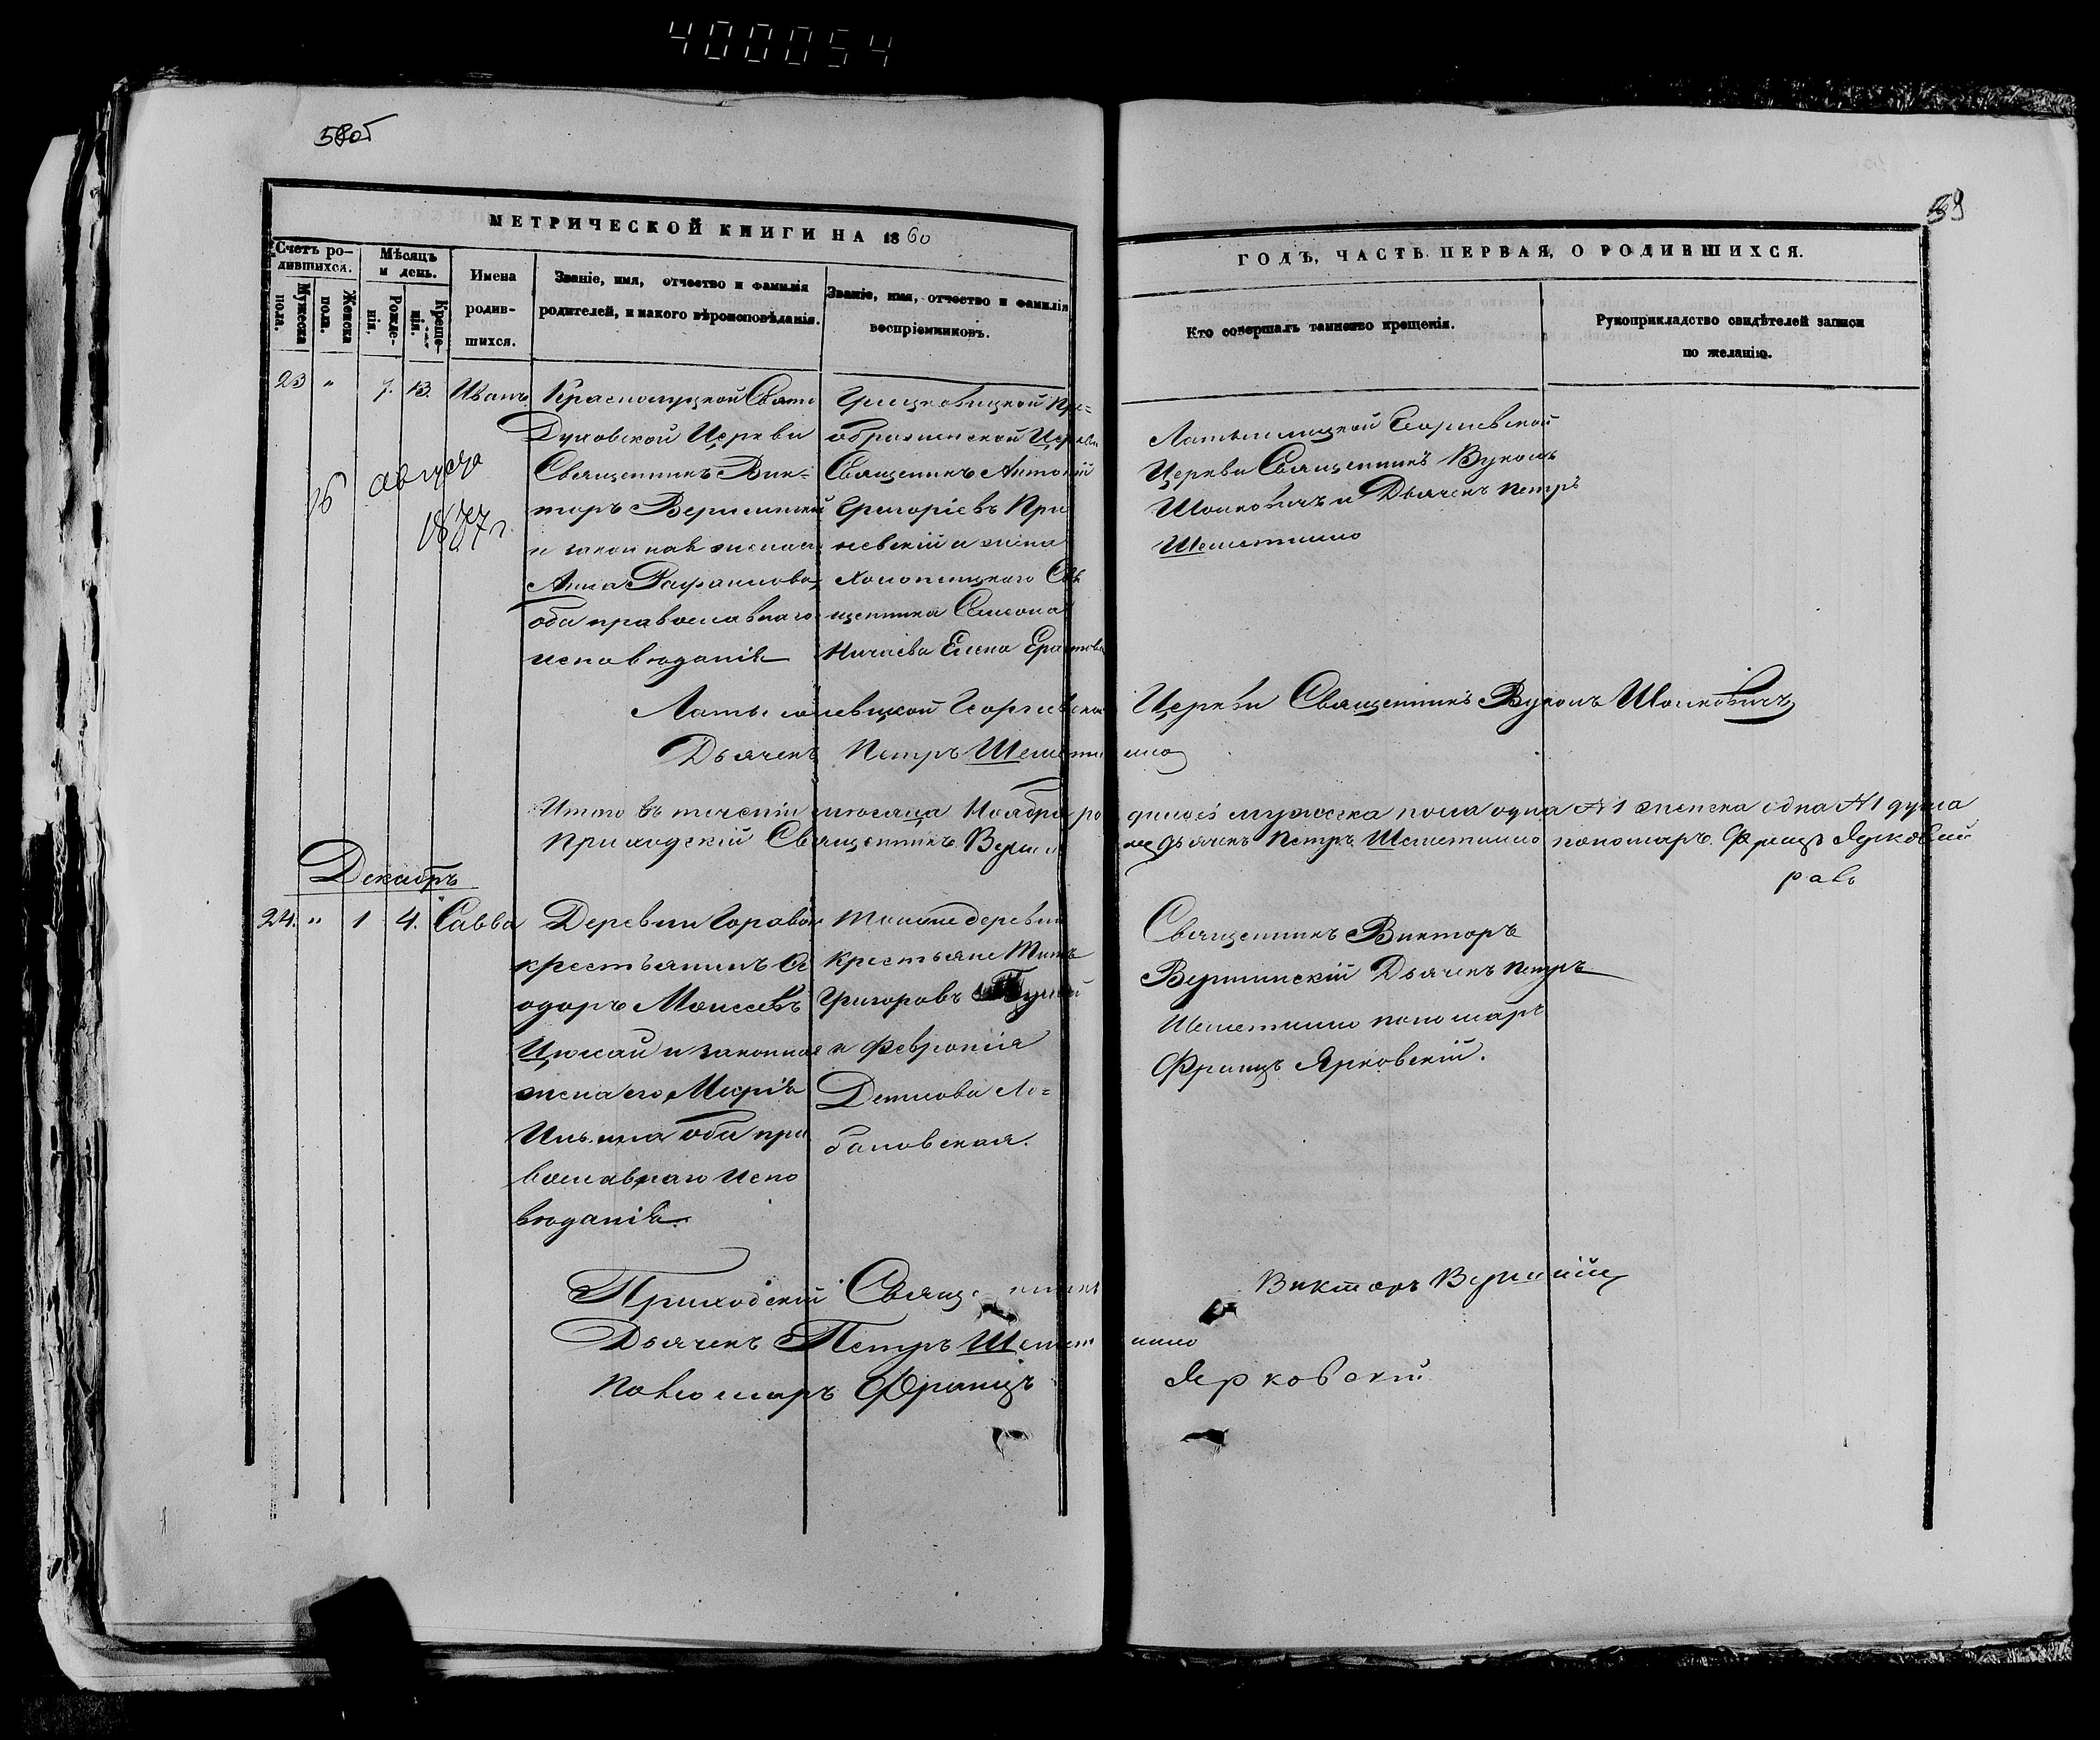 400054
58об
59
МЕТРИЧЕСКОЙ КНИГИ НА 1860
ГОДЪ, ЧАСТЬ ПЕРВАЯ, О РОДИВШИХСЯ.
Счетъ ро-
дившихся.
Мужеска
пола.
Женска
пола.
Мѣсяцъ
и день.
Рожде-
нія.
Креще-
нія.
Имена
родив-
шихся.
Званіе, имя, отчество и фамилія
родителей, и какого вѣроисповѣданія.
Званіе, имя, отчество и фамилія
воспріемниковъ.
Кто совершалъ таинство крещенія.
Рукоприкладство свидѣтелей записи
по желанію.
23 " 7. 13. Иванъ
16 августа
1877 г.
Краснолуцкой Свято
Духовской Церкви
Священникъ Вик-
торъ
и законная жена
Анна
оба православнаго
исповѣданія
образженской Церкви
Священникъ Антоній
Григоріевъ При
невскій и жена
Холопеницкаго Свя
щенника Симона
Ничаева Елена
Георгіевской
Церкви Священникъ Вуколъ
и Дьячекъ Петръ
Шеметилло
Георгіевской Церкви Священникъ Вуколъ
Дьячекъ Петръ Шеметилло
Итого въ теченіи мѣсяца Ноября родилось мужеска пола одна № 1 женска одна № 1 душа
Приходскій Священникъ дьячекъ Петръ Шеметилло пономарь Францъ Ярковскій
Декабрь
24. " 1 4. Савва
Деревни Горавой
крестьянинъ Ѳе
одоръ Моисеевъ
и законная
жена его Марія
Ильина оба пра
вославнаго испо
вѣданія.
тойже деревни
крестьяне Титъ
Григоровъ
и Февронія
Демидова Ло-
бановская.
Священникъ Викторъ
Дьячекъ Петръ
Шеметилло пономарь
Францъ Ярковскій.
Приходскій Священникъ Викторъ
Дьячекъ Петръ Шеметилло
Пономарь Францъ Ярковскій